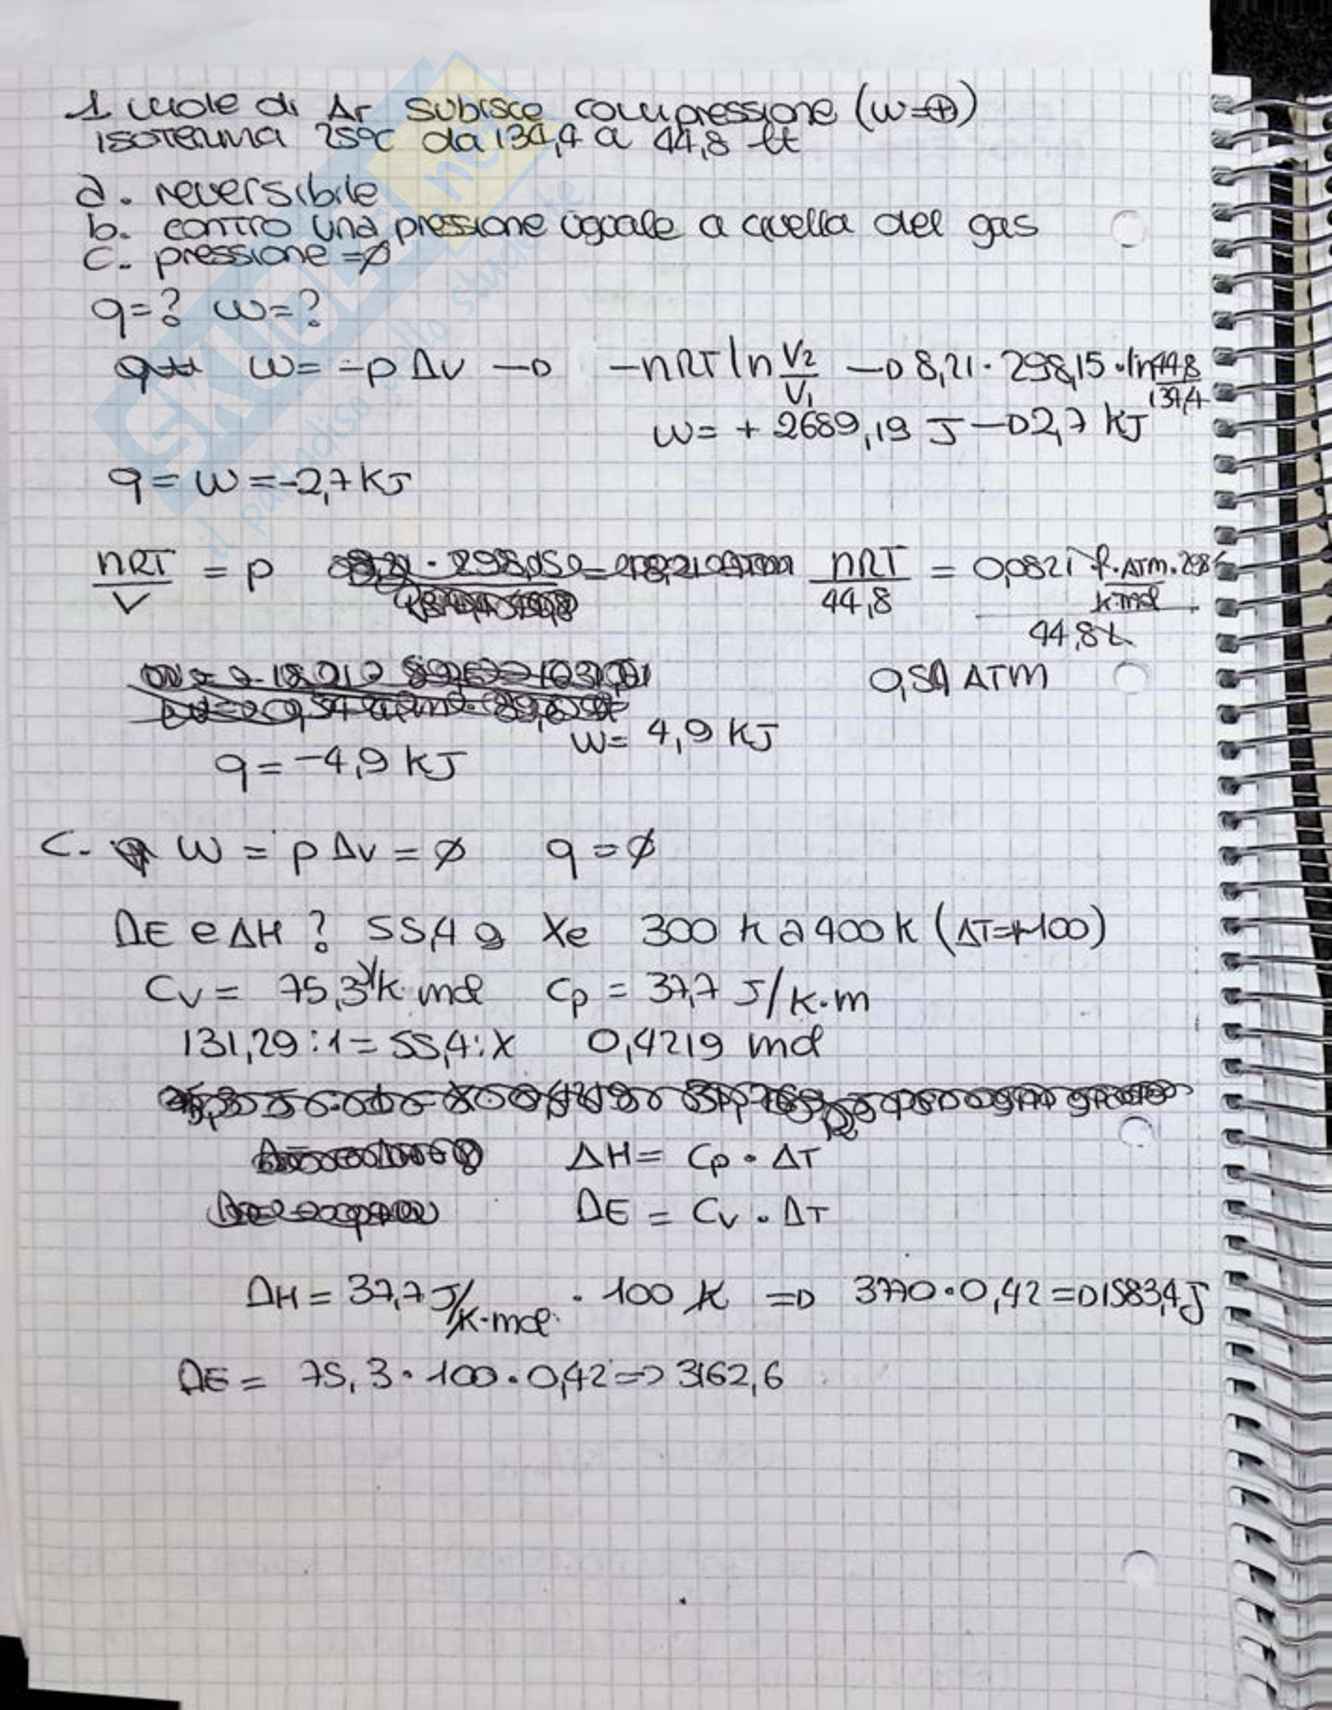 1 mole di Ar subisce compressione (w=⊕)
isoterma 25°C da 134,4 a 44,8 lt
a. reversibile
b. contro una pressione uguale a quella del gas
c. pressione =∅
q=? w=?
w= -p Δv → -nRT ln V2/V1 → 8,21 · 298,15 · ln 44,8/134,4
w= + 2689,19 J → 2,7 kJ
q = w = -2,7 kJ
nRT/V = p nRT/44,8 = 0,0821 l·ATM·298/K·mol / 44,8 L
0,54 ATM
w= 4,9 kJ
q = -4,9 kJ
c. w = p Δv = ∅ q = ∅
ΔE e ΔH ? 55,4 g Xe 300 K a 400 K (ΔT=+100)
Cv = 75,3 J/K·mol Cp = 37,7 J/K·m
131,29 : 1 = 55,4 : X 0,4219 mol
ΔH = Cp · ΔT
ΔE = Cv · ΔT
ΔH = 37,7 J/K·mol · 100 K ⇒ 3770 · 0,42 ⇒ 1583,4 J
ΔE = 75,3 · 100 · 0,42 ⇒ 3162,6
SKUOLA.net
il paradiso dello studente